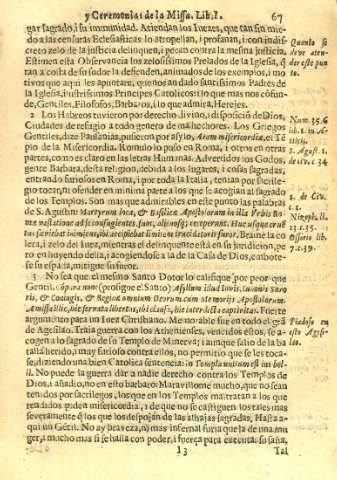 y Ceremonias de la Missa. Lib. I. 67
gar sagrado, i su immunidad. Atiendan los Iuezes, que tan sin mie-
do a las censuras Eclesiasticas lo atropellan, i profanan, i con indis-
creto zelo de la justicia delinquen, i pecan contra la mesma justicia.
Estimen esta Observancia los zelosissimos Prelados de la Iglesia, si
tan a costa de su sudor la defienden, animados de los exemplos, i mo
tivos que aqui les apuntare, quenos an dado santissimos Padres de
la Iglesia, i lustrissimos Principes Catolicos: i lo que mas nos con-
funde, Gentiles, Filosofos, Barbaros, i lo que admira, Herejes.
2 Los Hebreos tuvieron por derecho divino, i disposició de Dios,
Ciudades de refugio a todo genero de malhechores. Los Griegos
Gentiles, dize Pausanias, pusieron por asylo, Aram misericordiæ, el Té
plo de la Misericordia. Romulo lo puso en Roma, i otros en otras
partes, como es claro en las letras Humanas. Advertidos los Godos,
gente Barbara, desta religion, debida a los lugares, i cosas sagradas,
entrando furiosos en Roma, i por toda la Italia, tenian por sacrile-
gio tocar, ni ofender en minima parte a los que se acogian al sagrado
de los Templos. Son mas que admirables en este punto las palabras
de S. Agustin: Martyrum loca, & Basilicæ Apostolorum in illa Urbis Ro-
mæ vastatione ad se confugientes, suos, alienosq; receperunt. Huc usque cruẽ
tus sæviebat inimicus, ibi accipiebat limitem trucidatoris furor. Brame la co
lera, i zelo del Iuez, mientras el delinquente está en su juridicion, pe-
ro en huyendo della, i acogiendose a la de la Casa de Dios, embote-
se su espada, mitigue su furor.
3 No sea que el mesmo Santo Dotor lo califique por peor que
Gentil. (prosigue el Santo) Asylum illud Iovis,
& Regiæ omnium Deorum cum Memorijs Apostolorum.
Fuerte
argumento para un Iuez Christiano. Memorable fue en todo el grã
de Agesilao. Traia guerra con los Athenienses, vencidos estos, se a-
cogen a lo sagrado de su Templo de Minerva; i aunque salio de la ba
talla herido, i muy furioso contra ellos, no permitio que se les toca-
se, diziendo una bien Catolica sentencia: in Templa
No puede la guerra dar a nadie derecho contra los Templos de
Dios, i añadio, no en esto barbaro: Maravillome mucho, que no sean
tenidos por sacrilegos, los que en los Templos maltratan a los que
rendidos piden misericordia, i de que no se castiguen los tales mas
severamente que los que despojan de las alhajas sagradas. Hasta a-
qui un Gétil. No ay braveza, ni mas infernal furia que la de una mu
ger, i mucho mas si se halla con poder, i fuerça para executar su saña.
I 3 Tal
Quanto se
deve aten-
der este pun
to.
Num. 35. 6
S. Agust. 1.
de civ. c. 34
1. de Civ.
c. 1.
Niceph. li.
13. c. 35.
Osorio lib.
7. c. 39.
Piedoso en
esto Agesi-
lao.